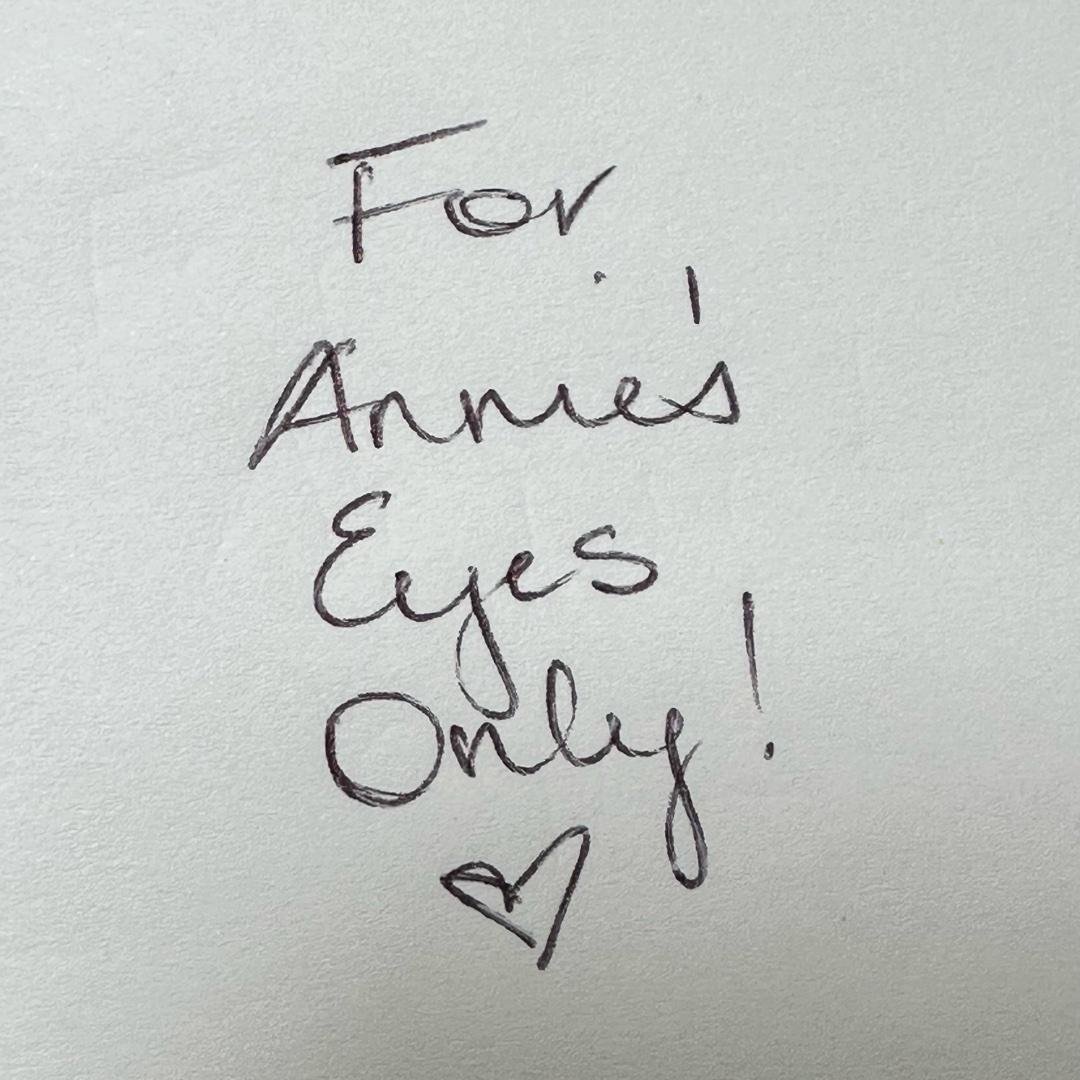 For
Annie's
Eyes
Only!